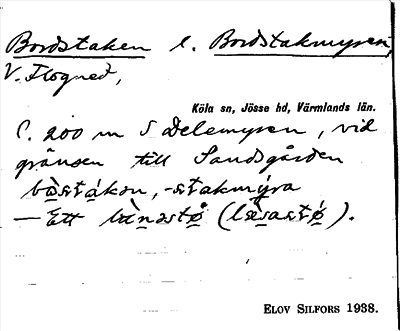 Bordstaken l. Bordstakmyren,
V. Flogned,
Köla sn, Jösse hd, Värmlands län.
C. 200 m S Delemyren, vid
gränsen till Sandsgården
bo̱sta̱kon, -stakmy̱ra
— Ett (læsastø).
ELOV SILFORS 1938.